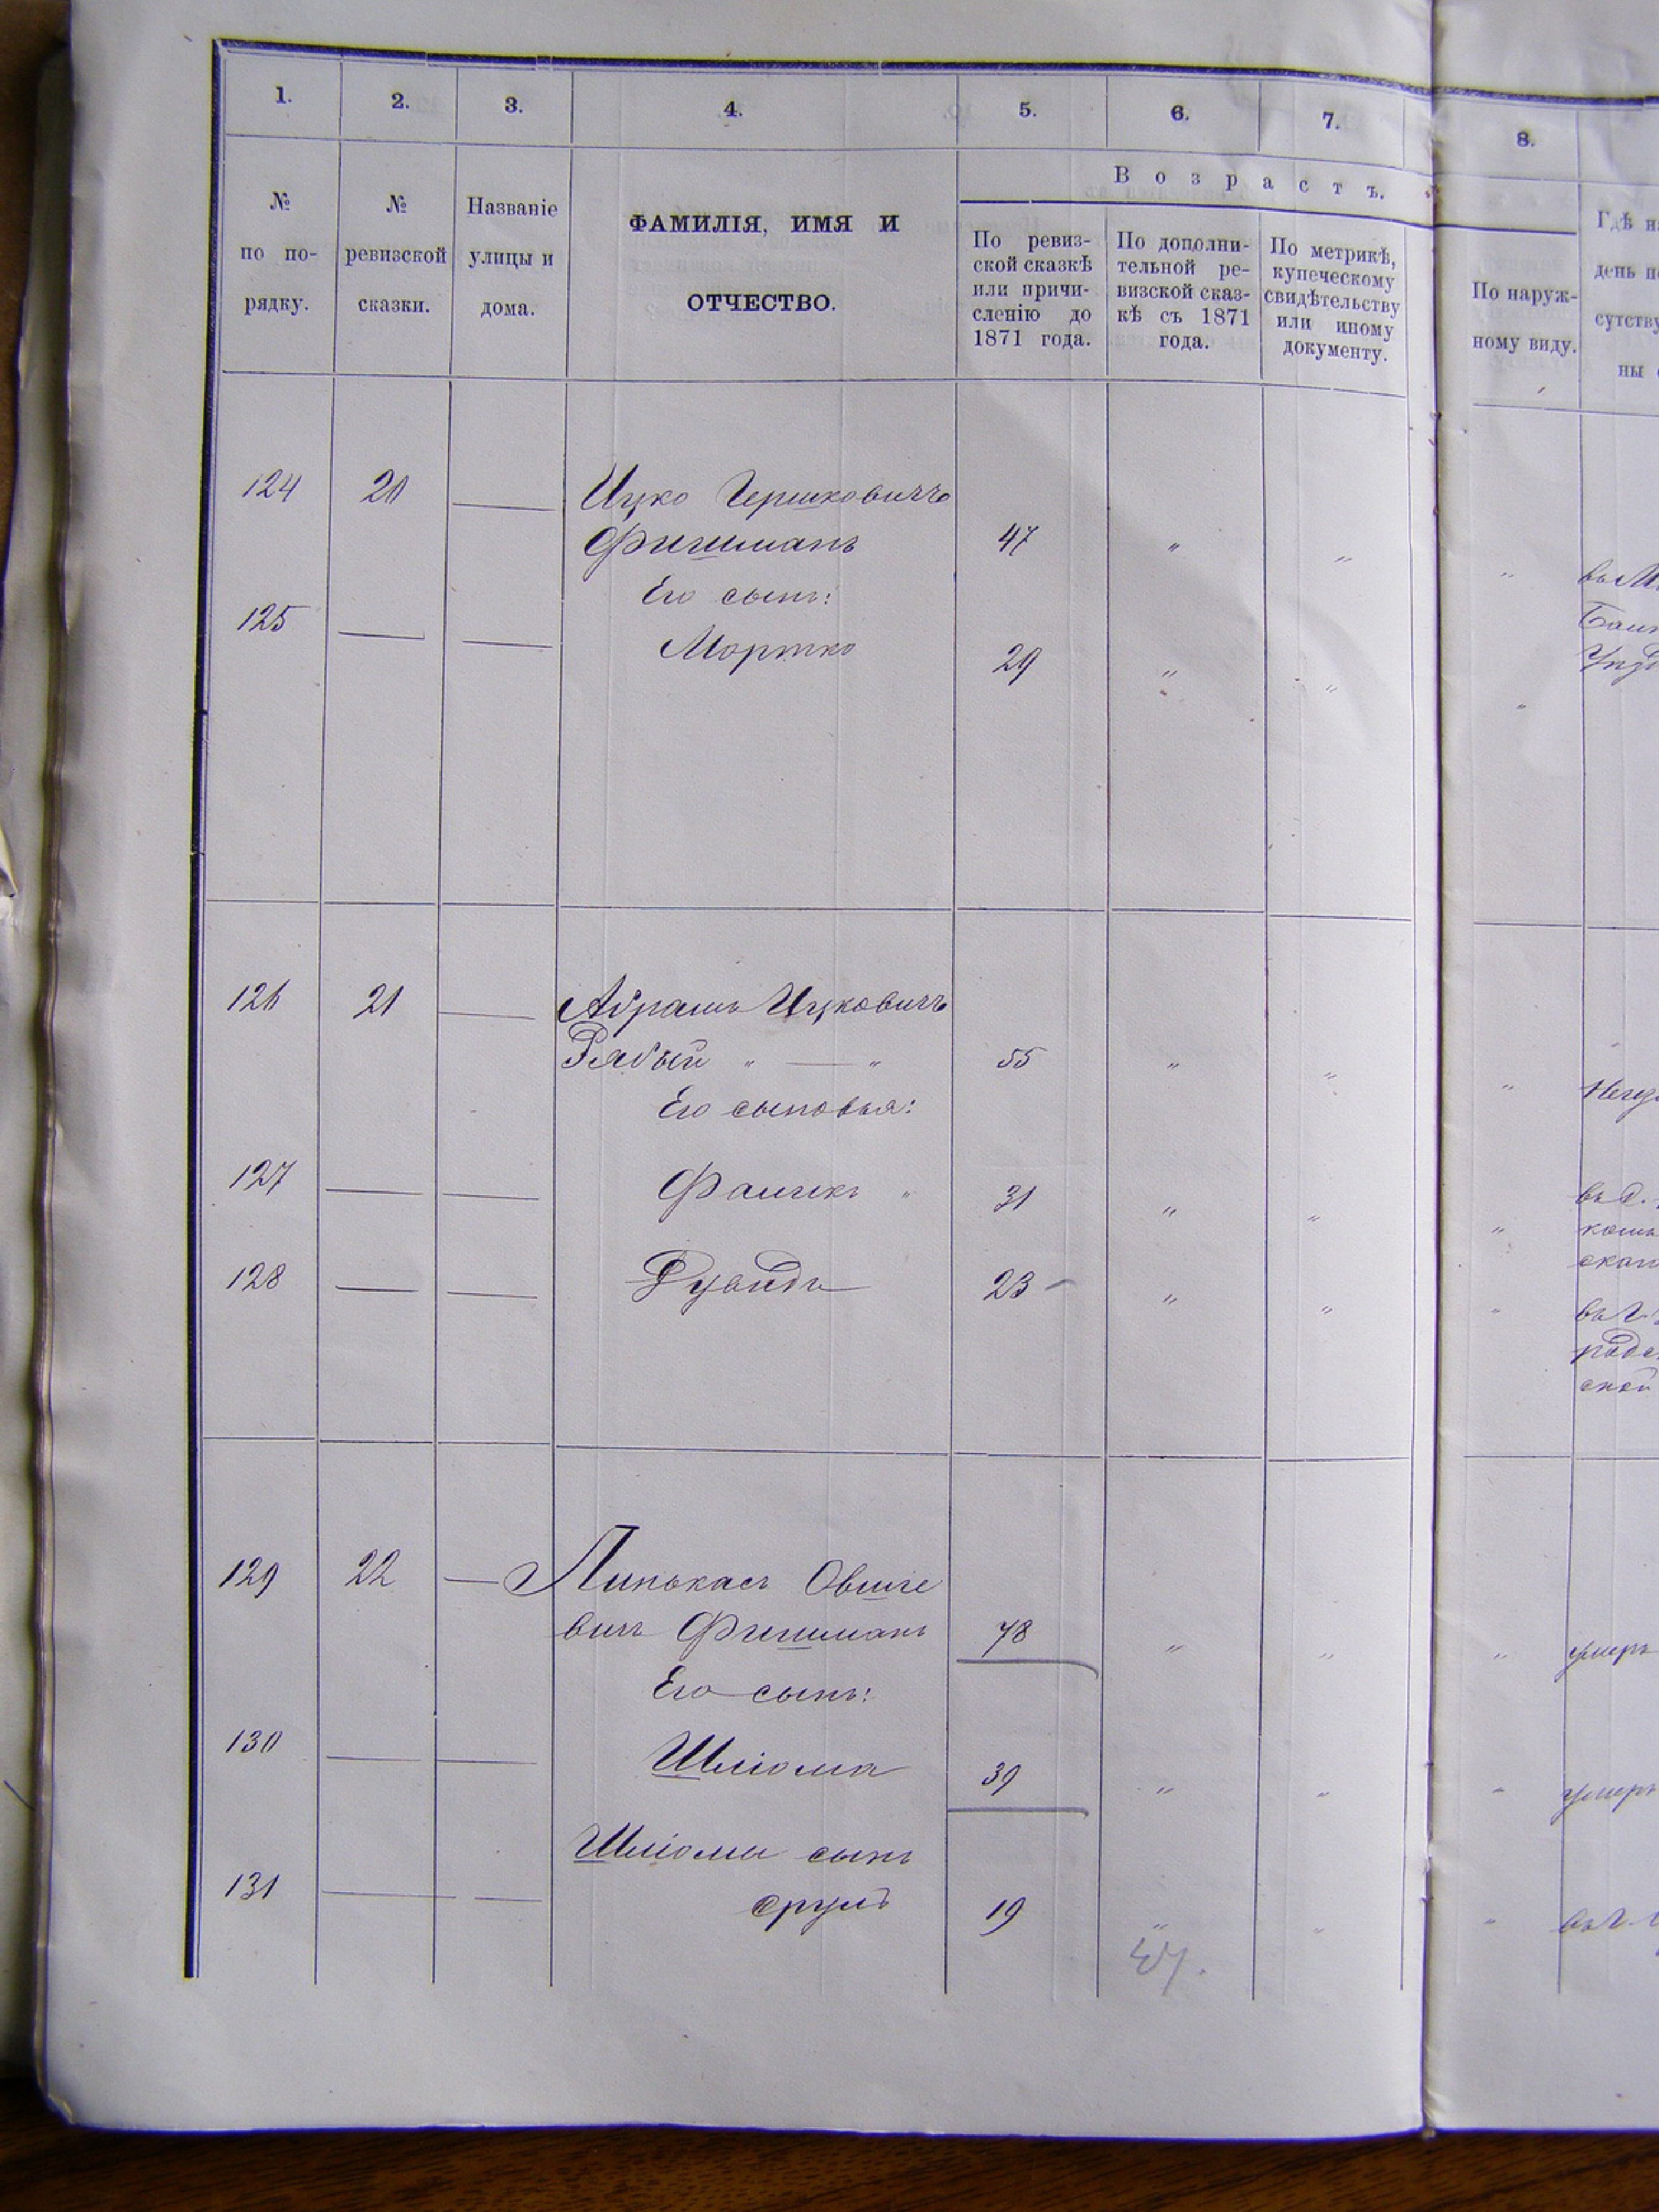 1. 2. 3. 4. 5. 6. 7. 8.
В о з р а с т ъ.
№ по по-рядку.
№ ревизской сказки.
Названіе улицы и дома.
ФАМИЛІЯ, ИМЯ И
ОТЧЕСТВО.
По ревиз-
ской сказкѣ
или причи-
сленію до
1871 года.
По дополни-
тельной ре-
визской сказ-
кѣ съ 1871
года.
По метрикѣ,
купеческому
свидѣтельству
или иному
документу.
По наруж-
ному виду.
Гдѣ н
день п
сутству
ны
124 20 — Ицко Гершковичъ
Фишманъ 47 " " "
Его сынъ:
125 — — Мортко 29 " " "
126 21 — Абрамъ Ицковичъ
Рябый " — " 55 " " "
Его сыновья:
127 — — Файликъ " 31 " " "
128 — — 23 " " "
129 22 — Пинькасъ Овшіе
вичъ Фишманъ 78 " " " умеръ
Его сынъ:
130 — — Шліома 39 " " " умеръ
Шліомы сынъ
131 — — Сруль 19 " " "